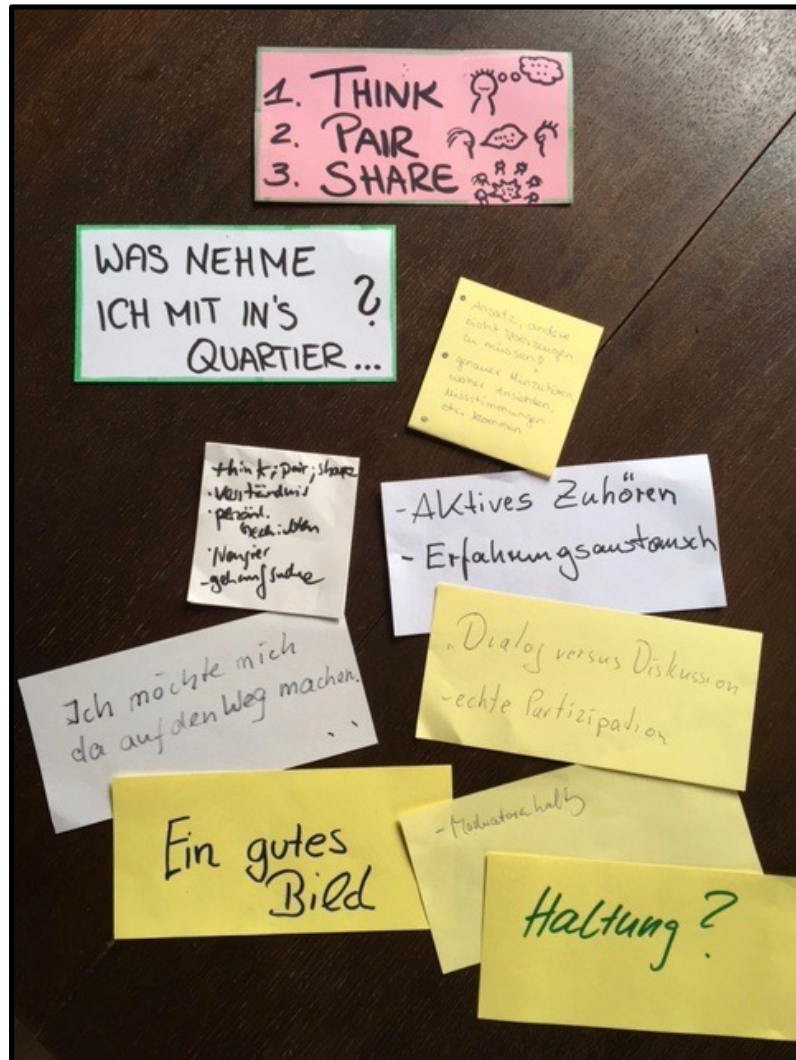 1. THINK
2. PAIR
3. SHARE
WAS NEHME
ICH MIT IN'S ?
QUARTIER...
• Ansatz, andere
nicht überzeugen
zu müssen!
• genauer Hinzuhören,
woher Ansichten,
Missstimmungen
etc. kommen
•
think; pair; share
• Verständnis
• persönl.
Geschichten
• Neugier
- Aktives Zuhören
- Erfahrungsaustausch
Ich möchte mich
da auf den Weg machen.
..
- Dialog versus Diskussion
- echte Partizipation
Ein gutes
Bild
Haltung?